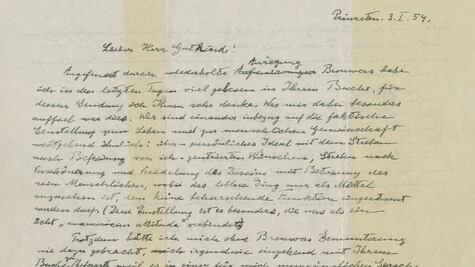 Princeton. 3. I. 54.
Lieber Herr Gutkind!
Anregung
Angefeuert durch wiederholte Brouwers habe
ich in den letzten Tagen viel gelesen in Ihrem Buche, für
dessen Sendung ich Ihnen sehr danke. Was mir dabei besonders
auffiel war dies. Wir sind einander inbezug auf die faktische
Einstellung zum Leben und zur menschlichen Gemeinschaft
weitgehend ähnlich: Ihr persönliches Ideal mit dem Streben
nach Befreiung von ich-zentrierten Wünschen, Streben nach
Verschönerung und Veredelung des Daseins mit Betonung des
rein Menschlichen, wobei das leblose Ding nur als Mittel
anzusehen ist, dem keine beherrschende Funktion eingeräumt
werden darf. (Diese Einstellung ist es besonders, die uns als ein
echt "unamerican attitude" verbindet)
Trotzdem hätte ich mich ohne Brouwers Ermunterung
nie dazu gebracht, mich irgendwie eingehend mit Ihrem
Buche zu befassen weil es in einer für mich unzugänglichen Sprache